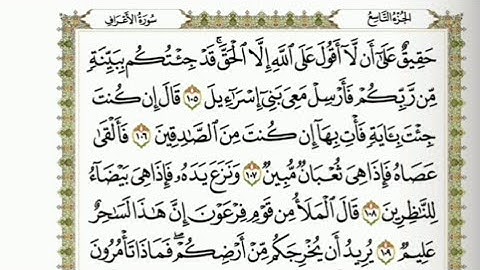 الجزء التاسع
سورة الأعراف
حَقِيقٌ عَلَىٰٓ أَن لَّآ أَقُولَ عَلَى ٱللَّهِ إِلَّا ٱلْحَقَّ ۚ قَدْ جِئْتُكُم بِبَيِّنَةٍ
مِّن رَّبِّكُمْ فَأَرْسِلْ مَعِىَ بَنِىٓ إِسْرَٰٓءِيلَ ١٠٥ قَالَ إِن كُنتَ
جِئْتَ بِـَٔايَةٍ فَأْتِ بِهَآ إِن كُنتَ مِنَ ٱلصَّٰدِقِينَ ١٠٦ فَأَلْقَىٰ
عَصَاهُ فَإِذَا هِىَ ثُعْبَانٌ مُّبِينٌ ١٠٧ وَنَزَعَ يَدَهُۥ فَإِذَا هِىَ بَيْضَآءُ
لِلنَّٰظِرِينَ ١٠٨ قَالَ ٱلْمَلَأُ مِن قَوْمِ فِرْعَوْنَ إِنَّ هَٰذَا لَسَٰحِرٌ
عَلِيمٌ ١٠٩ يُرِيدُ أَن يُخْرِجَكُم مِّنْ أَرْضِكُمْ ۖ فَمَاذَا تَأْمُرُونَ